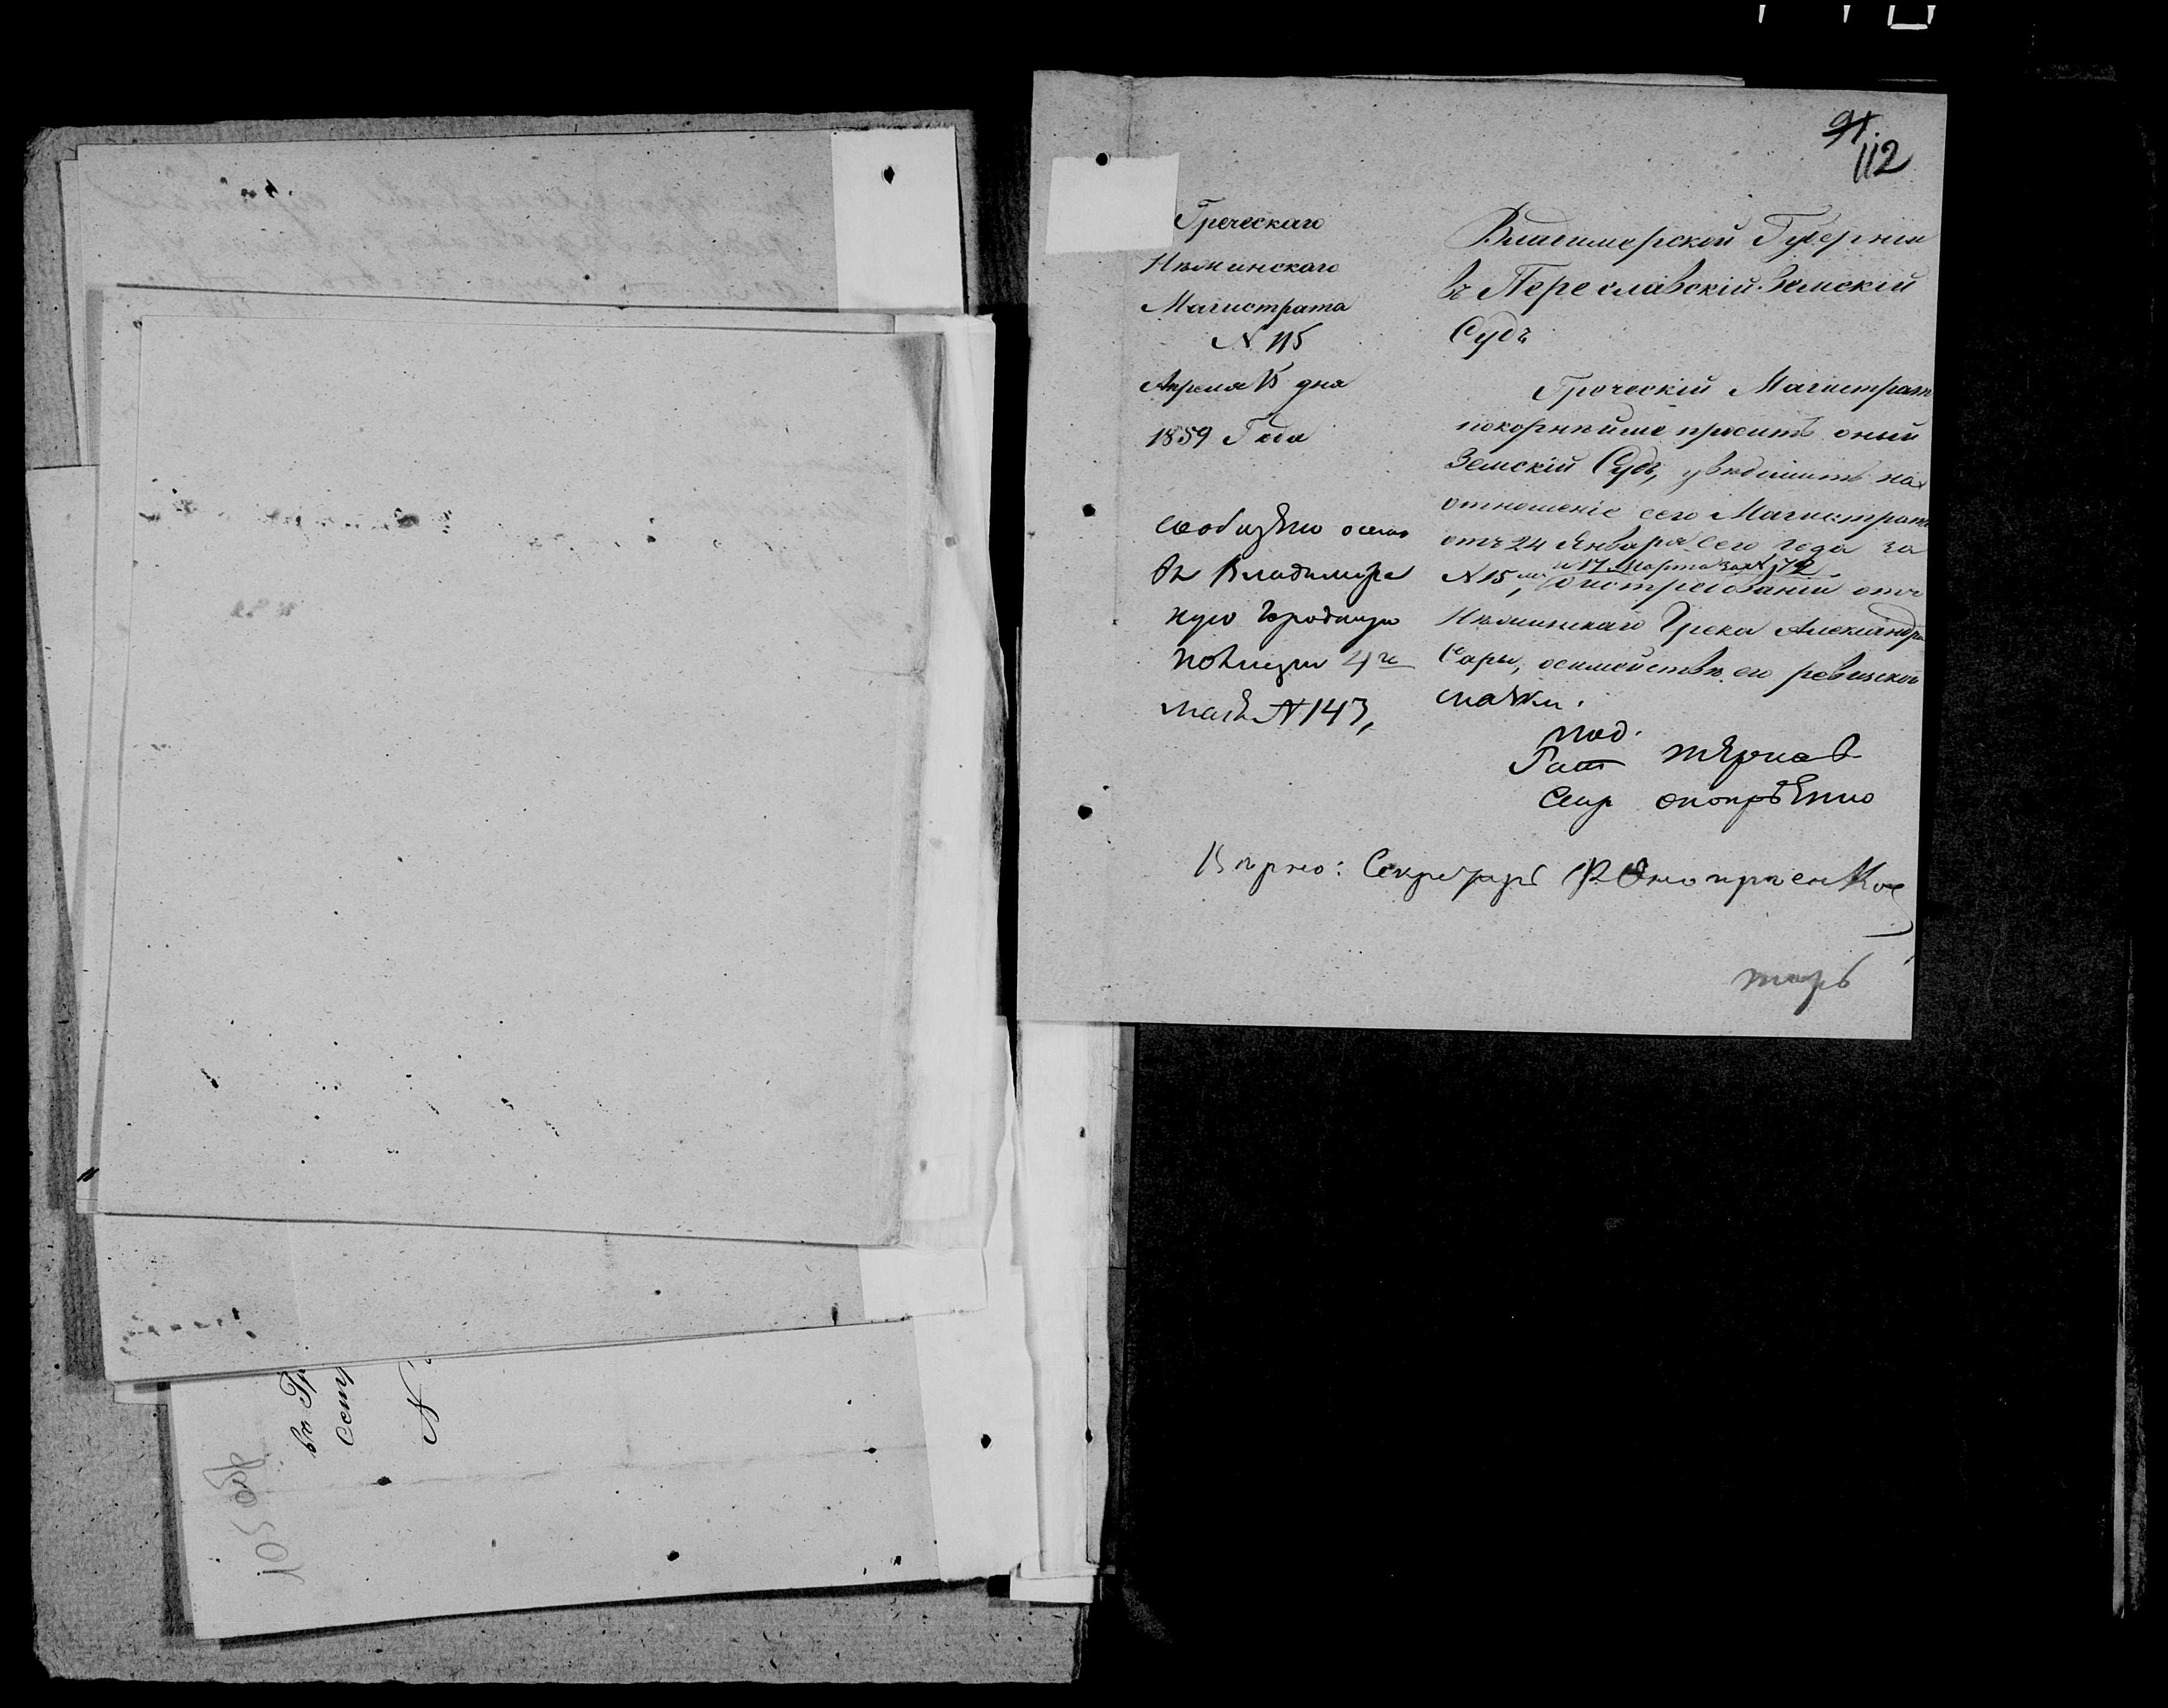 91.
112
Греческаго
Нѣжинскаго
Магистрата
N 115
Апреля 15 дня
1859 Года
сообщено
въ Владимирс
кую Городскую
полицію 4го
маія N 143,
Владимирской Губерніи
въ Переславскій Земскій
Судъ
Греческій Магистратъ
покорнѣйше проситъ оный
Земскій Судъ, увѣдомить на
отношеніе сего Магистрата
отъ 24 Января сего года за
и 17 Марта за N 72
N 15м, о истребованіи отъ
Нѣжинскаго Грека Александра
Сары, осемействѣ его ревизской
скаски.
под.
Рат
Секр
Вѣрно: Секретарь
105 об
въ Гр
Сент
N